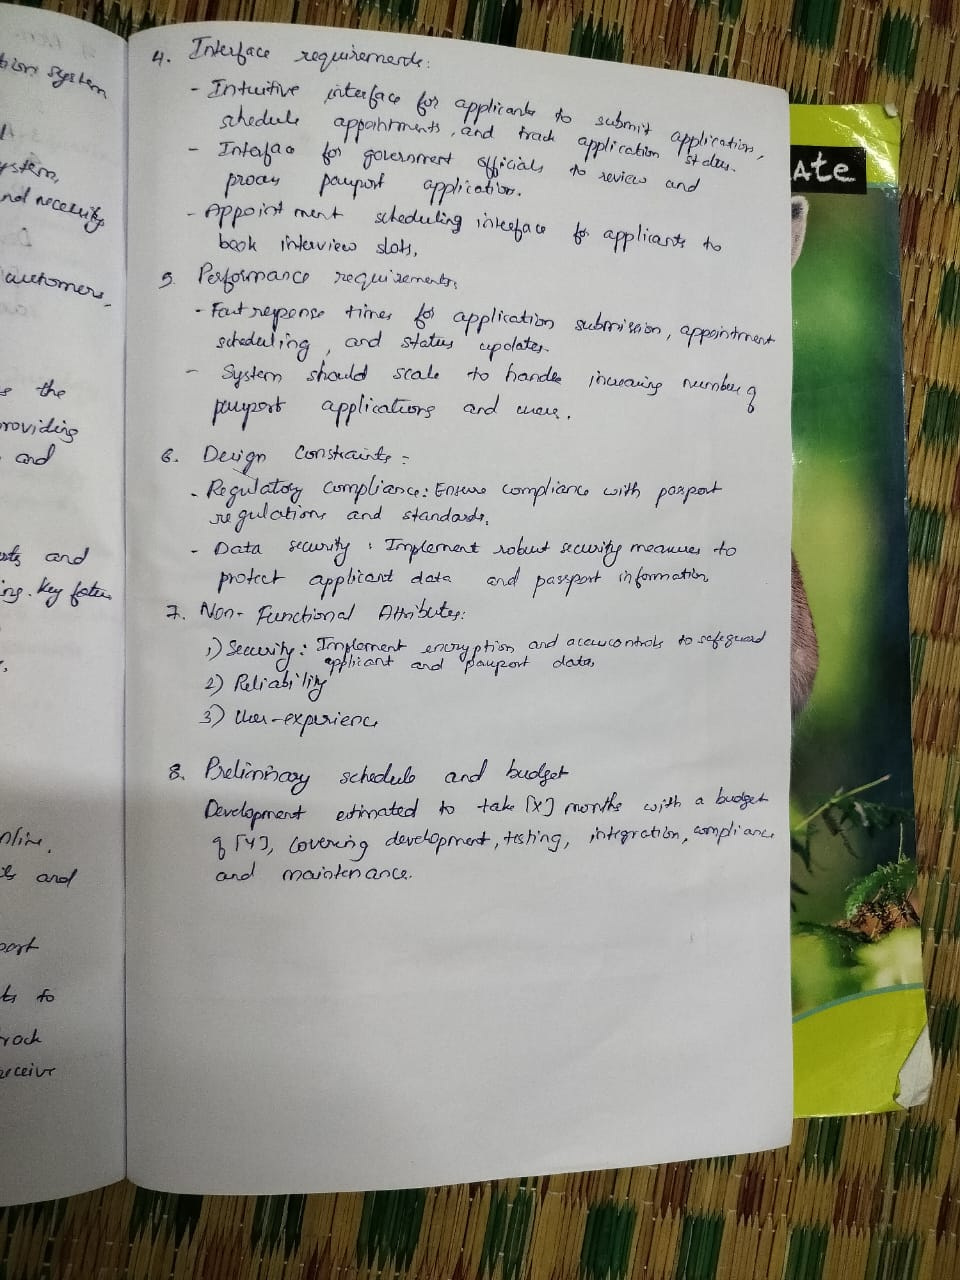 bion system
ystem,
and necessity
customers,
the
roviding
and
and
ing. Key
nline,
and
port
to
rack
receive
4. Interface requirements:
- Intuitive interface for applicants to submit application,
schedule appointments, and track application status.
- Interface for government officials to review and
process passport application.
- Appointment scheduling interface for applicants to
book interview slots,
5. Performance requirements:
- Fast response times for application submission, appointment
scheduling, and status updates.
- System should scale to handle increasing number of
passport applications and users.
6. Design Constraints:
- Regulatory compliance: Ensure compliance with passport
regulations and standards.
- Data security: Implement robust security measures to
protect applicant data and passport information
7. Non-Functional Attributes:
1) Security: Implement encryption and access controls to safeguard
applicant and passport data,
2) Reliability
3) User-experience
8. Preliminary schedule and budget
Development estimated to take [X] months with a budget
of [Y], covering development, testing, integration, compliance
and maintenance.
Ate